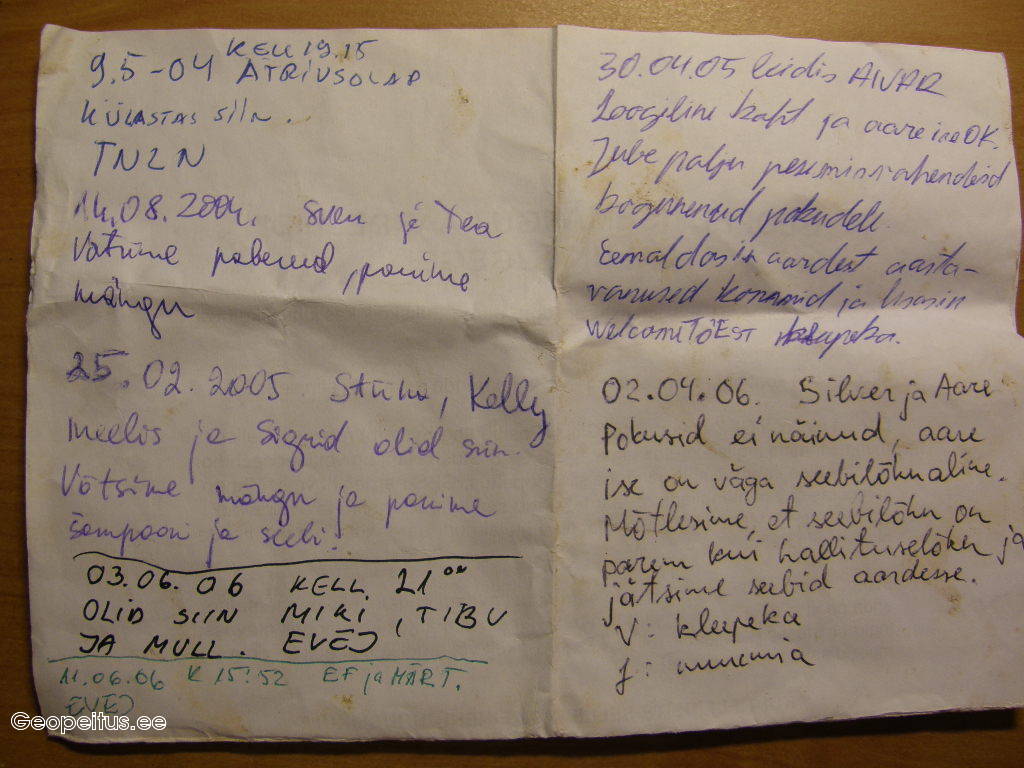 KELL 19.15
9.5-04 ATRIUSOLAP
KÜLASTAS SIIN.
TNLN
14.08.2004. Sven ja Tea
Võtsime paberid, panime
mängu
25.02.2005 Stiina, Kelly
Meelis ja Sigrid olid siin.
Võtsime mängu ja panime
šampooni ja seebi!
03.06.06 KELL 21⁰⁰
OLID SIIN MIKI, TIBU
JA MULL. EVEJ
11.06.06 K 15:52 EF ja MÄRT.
EVEJ
30.04.05 leidis AIVAR
Loogiline koht ja aare ise OK.
Jube palju pesemisvahendeid
kogunenud pokudele.
Eemaldasin aardest aasta-
vanused kommid ja lisasin
Welcome TO EST kleepeka.
02.04.06. Silver ja Aare
Pokusid ei näinud, aare
ise on väga seebilõhnaline.
Mõtlesime, et seebilõhn on
parem kui hallituselõhn ja
jätsime seebid aardesse.
V: kleepeka
J: muumia
Geopeitus.ee